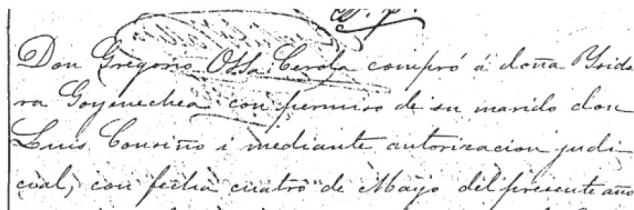 Don Gregorio Ossa Cerda compró á doña Ysido
ra Goyenechea con permiso de su marido don
Luis Cousiño i mediante autorizacion judi
cial, con fecha cuatro de Mayo del presente año